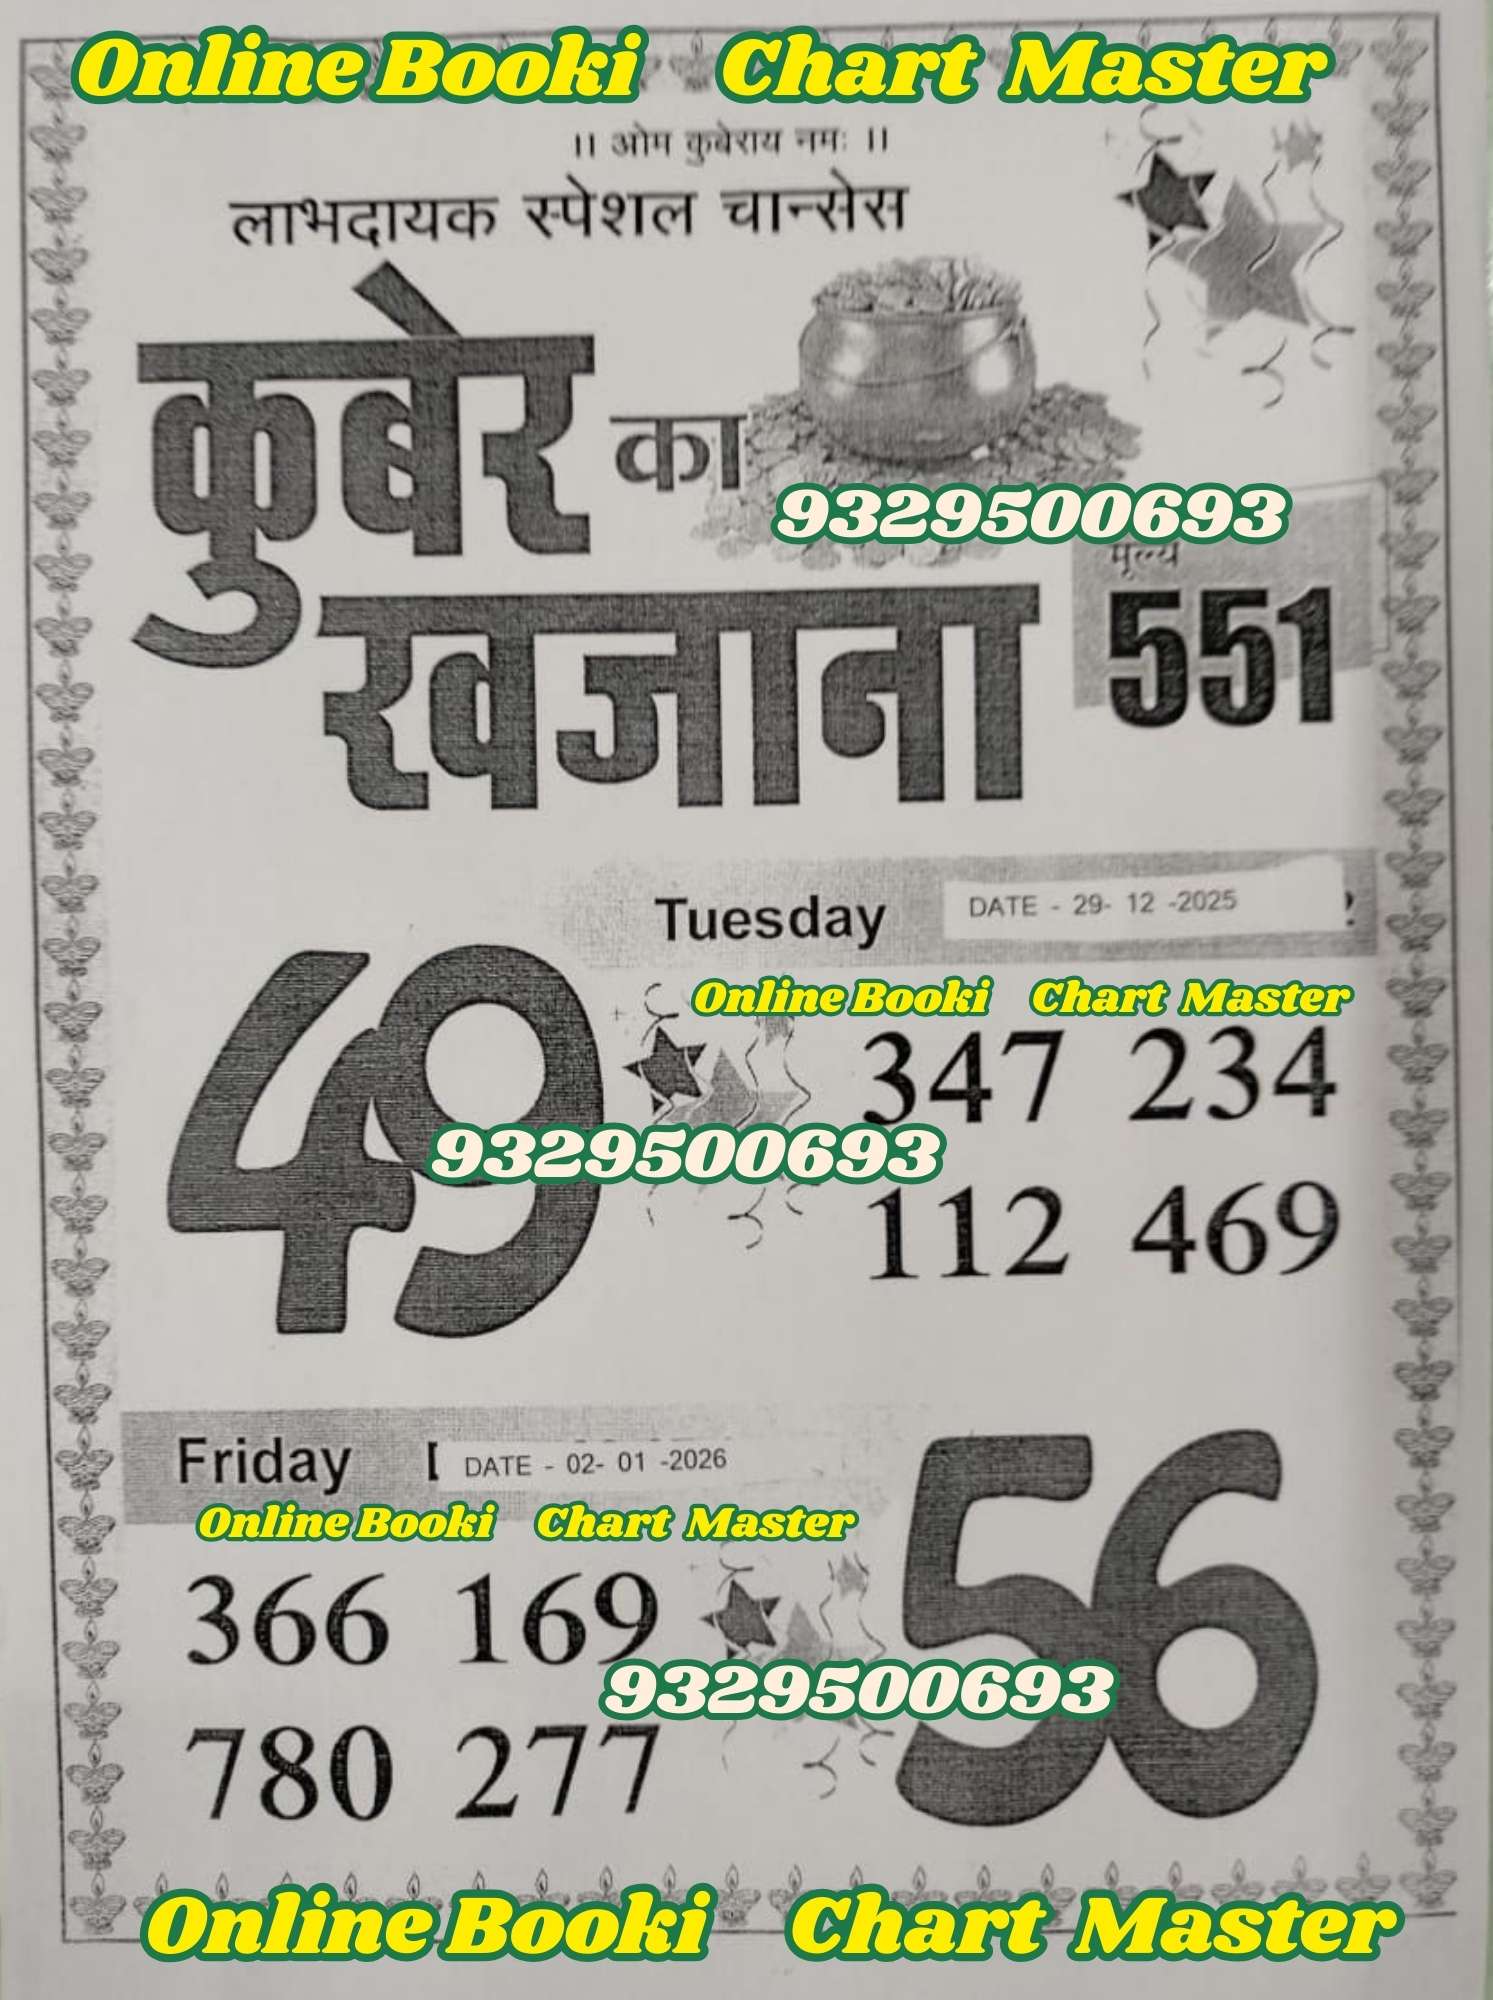 Online Booki Chart Master
।। ओम कुबेराय नमः ।।
लाभदायक स्पेशल चान्सेस
कुबेर का
9329500693
मूल्य
खजाना 551
Tuesday DATE - 29- 12 -2025
Online Booki Chart Master
49 347 234
9329500693
112 469
Friday DATE - 02- 01 -2026
Online Booki Chart Master
366 169 56
9329500693
780 277
Online Booki Chart Master